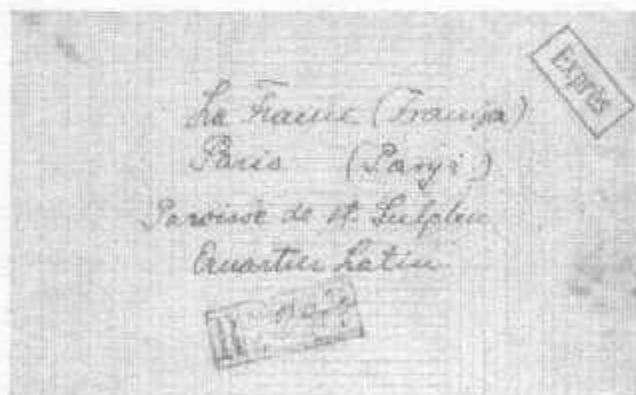 Exprès
La France (Francja)
Paris (Paryż)
Paroisse de St. Sulpice
Quartier Latin
R